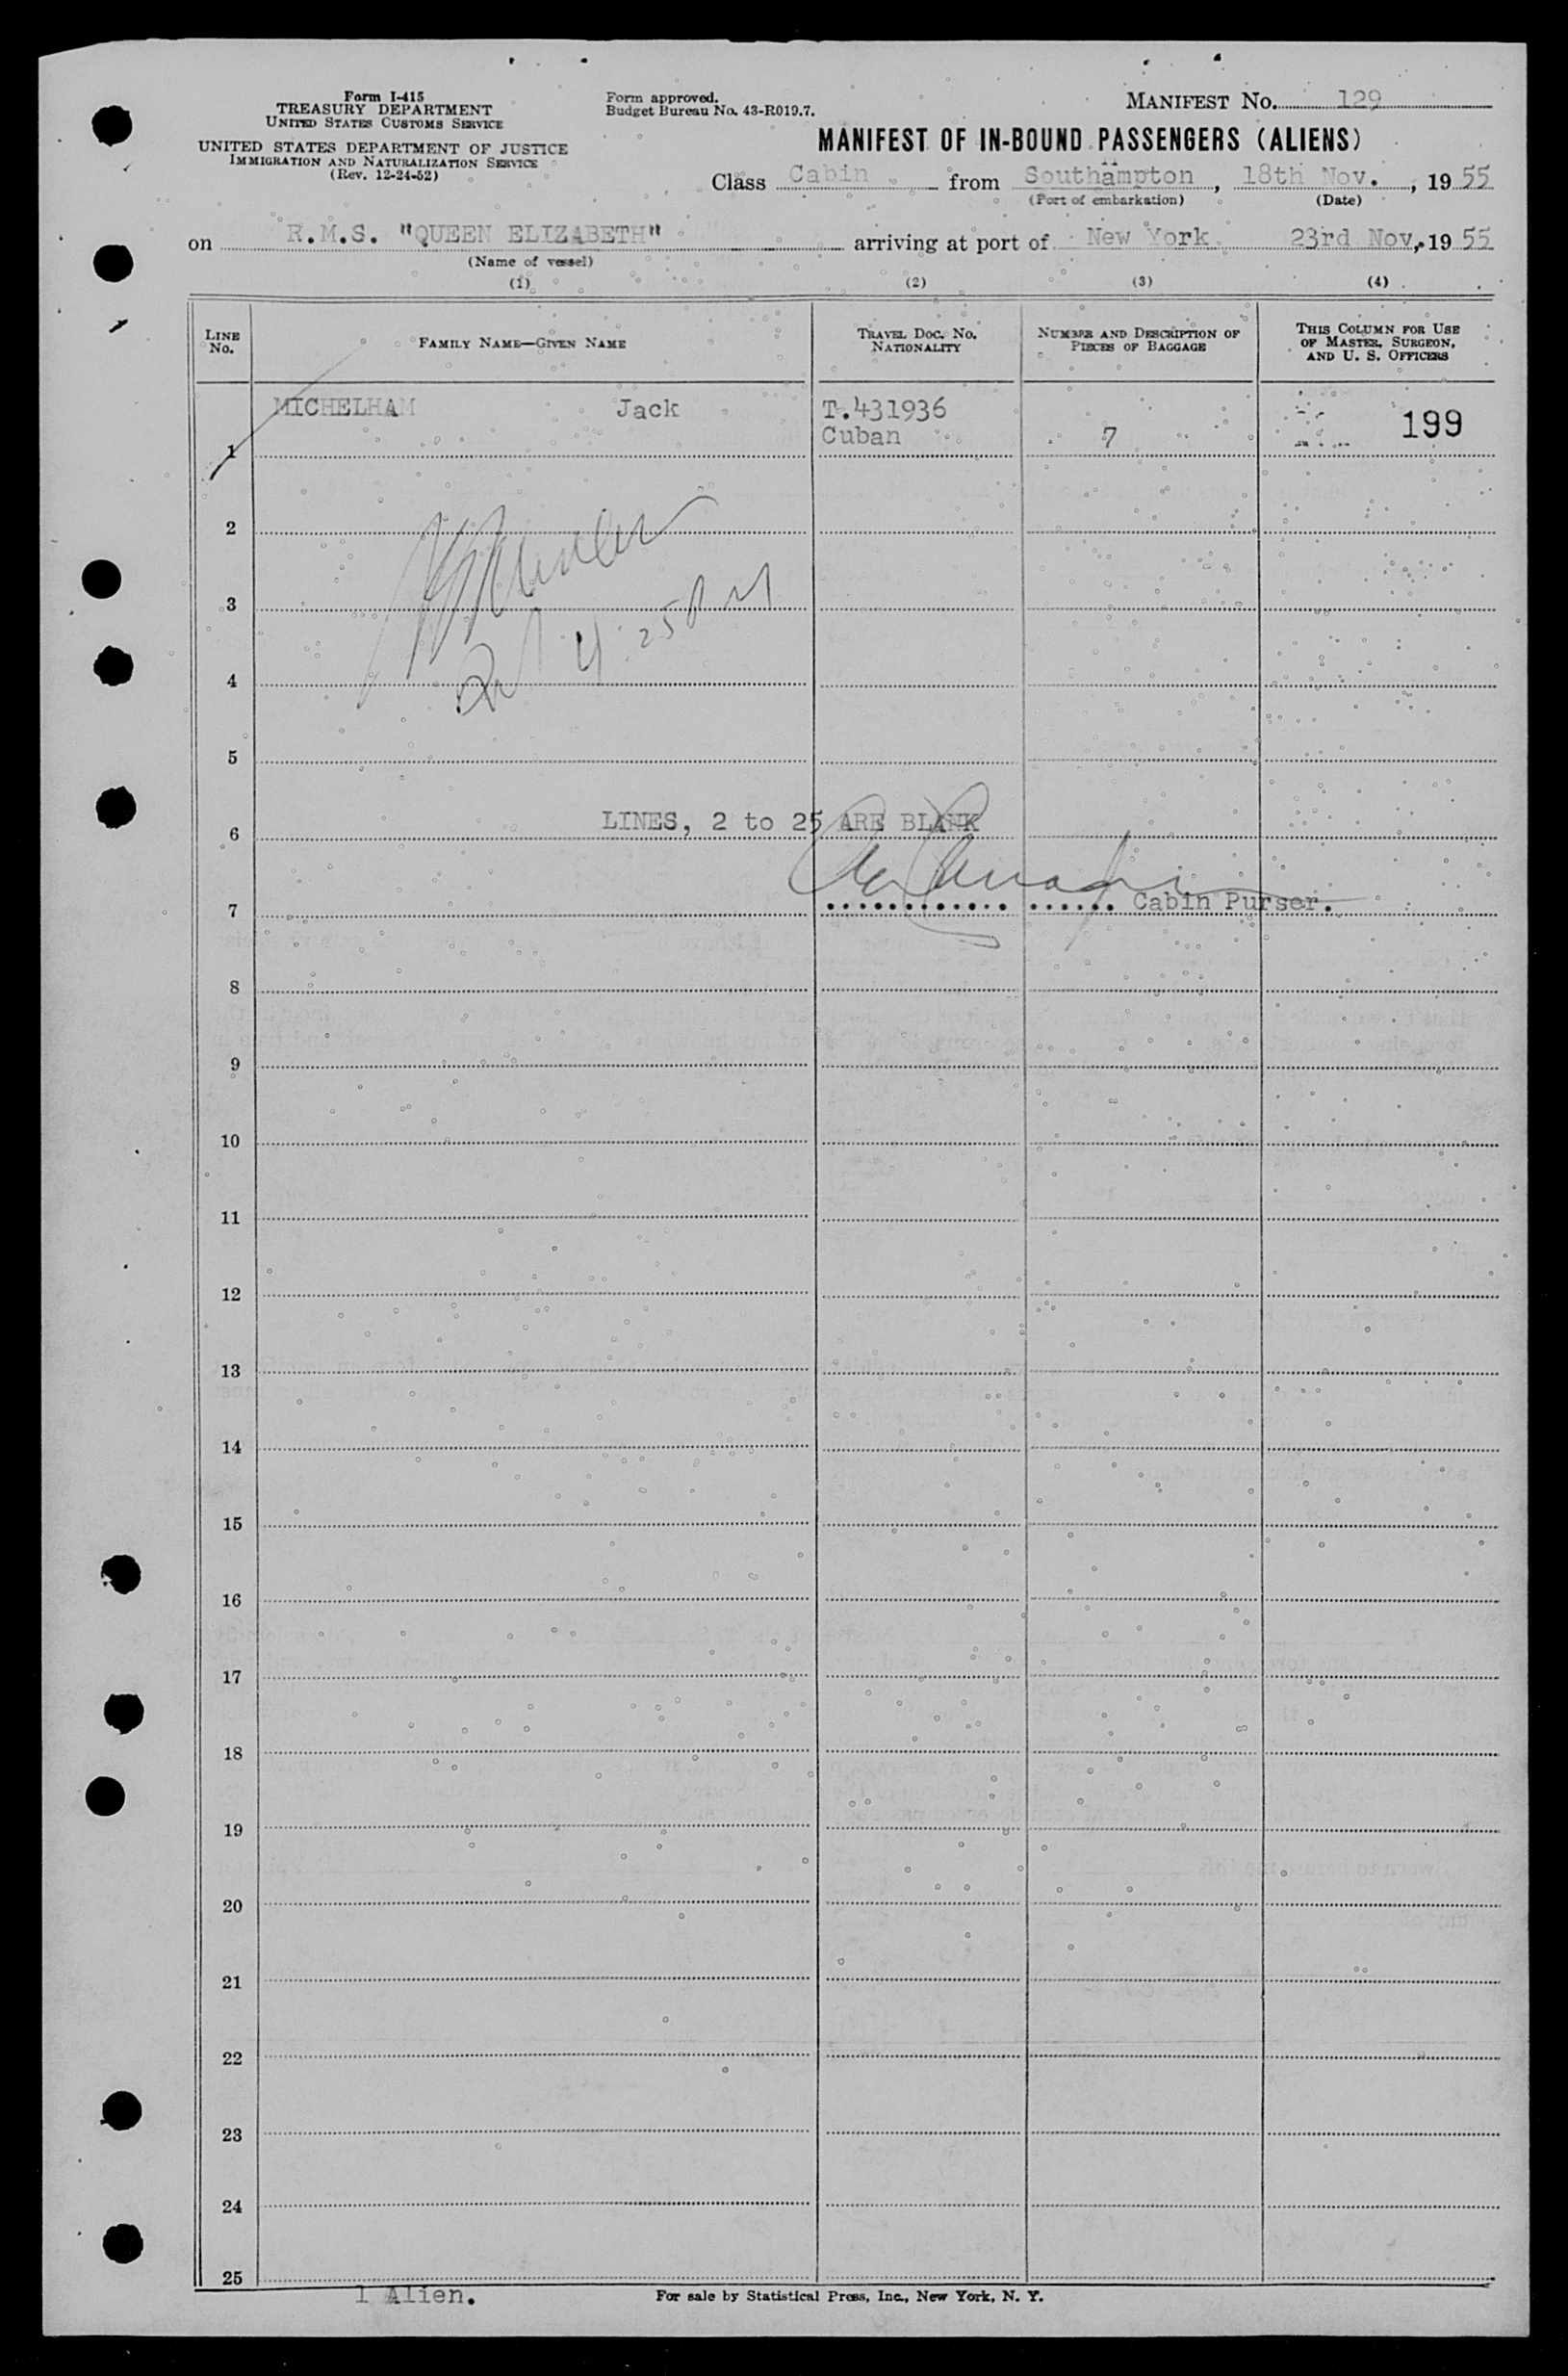 Form I-415
TREASURY DEPARTMENT
UNITED STATES CUSTOMS SERVICE
UNITED STATES DEPARTMENT OF JUSTICE
IMMIGRATION AND NATURALIZATION SERVICE
(Rev. 12-24-52)
Form approved.
Budget Bureau No. 43-R019.7.
MANIFEST No. 129
MANIFEST OF IN-BOUND PASSENGERS (ALIENS)
Class Cabin from Southampton, 18th Nov., 1955
(Port of embarkation) (Date)
on R.M.S. "QUEEN ELIZABETH" arriving at port of New York 23rd Nov, 1955
(Name of vessel)
(1) (2) (3) (4)
LINE No.
FAMILY NAME—GIVEN NAME
TRAVEL DOC. No. NATIONALITY
NUMBER AND DESCRIPTION OF PIECES OF BAGGAGE
THIS COLUMN FOR USE OF MASTER, SURGEON, AND U. S. OFFICERS
MICHELHAM Jack T.431936
1 Cuban 7 199
2
3
4:25 PM
4
5
6 LINES, 2 to 25 ARE BLANK
7 Cabin Purser.
8
9
10
11
12
13
14
15
16
17
18
19
20
21
22
23
24
25
1 Alien.
For sale by Statistical Press, Inc., New York, N. Y.